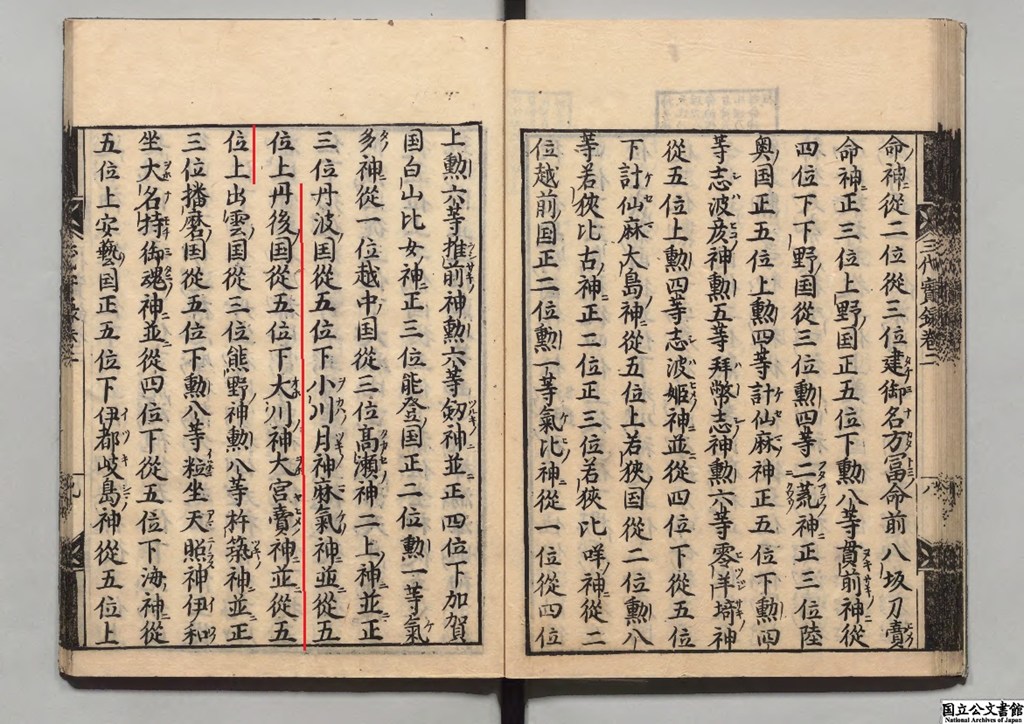 三代實錄卷二
八
命神從二位從三位建御名方冨命前八坂刀賣
命神正三位上野国正五位下勲八等貫前神從
四位下下野国從三位勲四等二荒神正三位陸
奥国正五位上勲四等計仙麻神正五位下勲四
等志波彦神勲五等拜幣志神勲六等零羊埼神
從五位上勲四等志波姬神並從四位下從五位
下計仙麻大島神從五位上若狹国從二位勲八
等若狹比古神正二位正三位若狹比咩神從二
位越前国正二位勲一等氣比神從一位從四位
上勲六等推前神勲六等劔神並正四位下加賀
国白山比女神正三位能登国正二位勲一等氣
多神從一位越中国從三位髙瀬神二上神並正
三位丹波国從五位下小川月神麻氣神並從五
位上丹後国從五位下大川神大宮賣神並從五
位上出雲国從三位熊野神勲八等杵築神並正
三位播磨国從五位下勲八等粒坐天照神伊和
坐大名持御魂神並從四位下從五位下海神從
五位上安藝国正五位下伊都岐島神從五位上
国立公文書館
National Archives of Japan